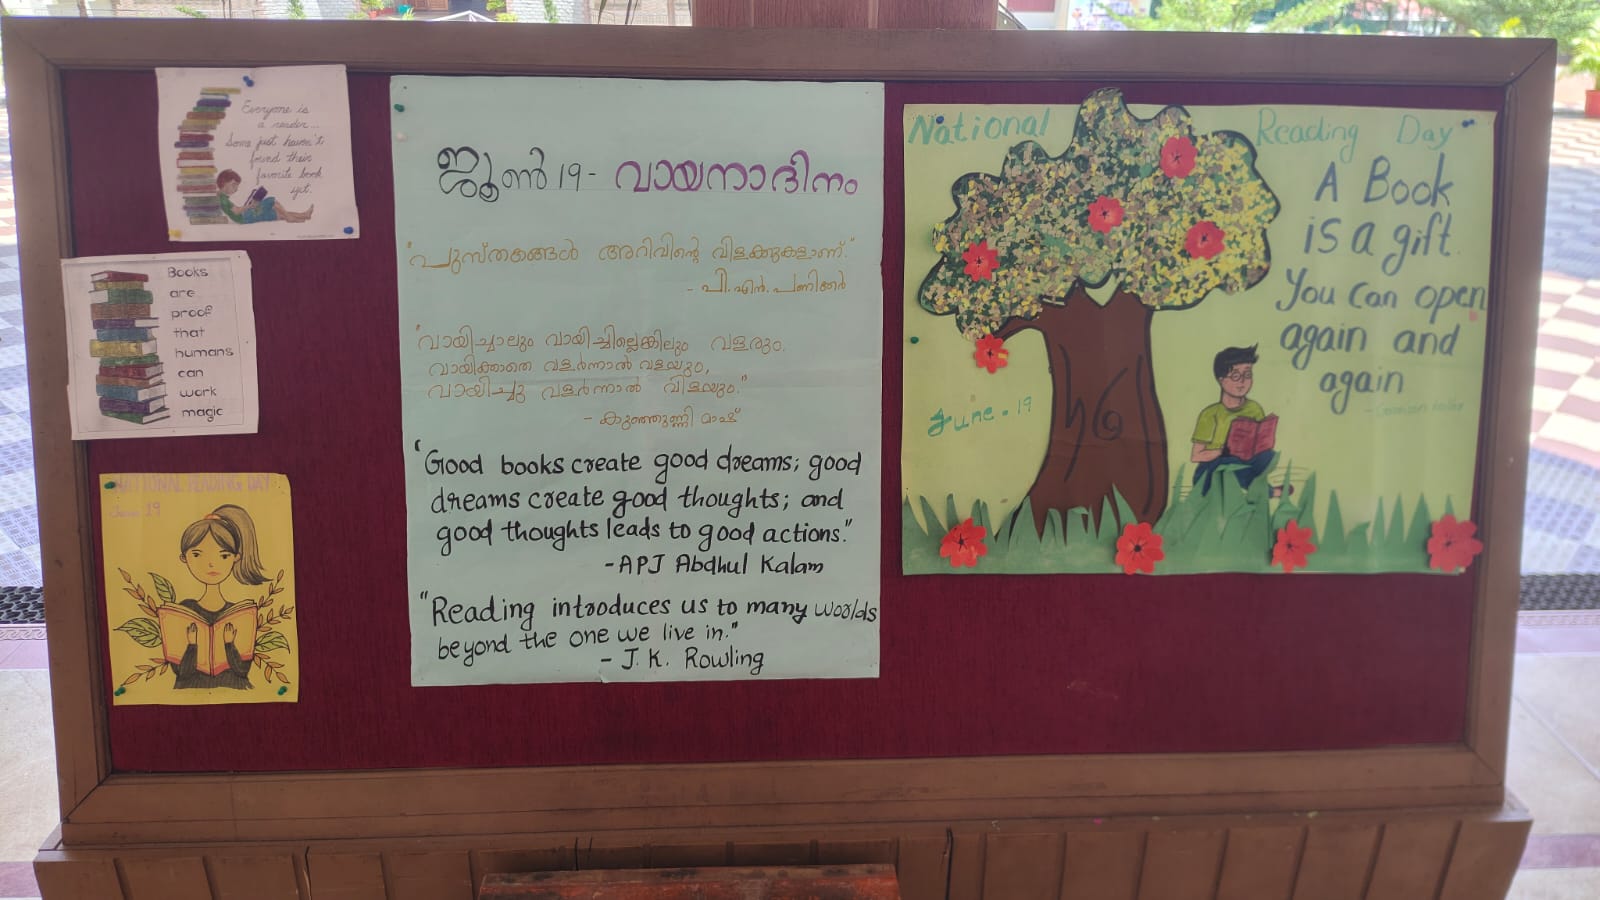 Everyone is
a reader...
Some just haven't
found their
favorite book
yet.
Books
are
proof
that
humans
can
work
magic
NATIONAL READING DAY
June 19
ജൂൺ 19 - വായനാദിനം
"പുസ്തകങ്ങൾ അറിവിന്റെ വിളക്കുകളാണ്."
- പി. എൻ. പണിക്കർ
"വായിച്ചാലും വായിച്ചില്ലെങ്കിലും വളരും.
വായിക്കാതെ വളർന്നാൽ വളയും,
വായിച്ചു വളർന്നാൽ വിളയും."
- കുഞ്ഞുണ്ണി മാഷ്
'Good books create good dreams; good
dreams create good thoughts; and
good thoughts leads to good actions."
-APJ Abdhul Kalam
"Reading introduces us to many worlds
beyond the one we live in."
- J. K. Rowling
National Reading Day
A Book
is a gift.
You can open
again and
again
June - 19